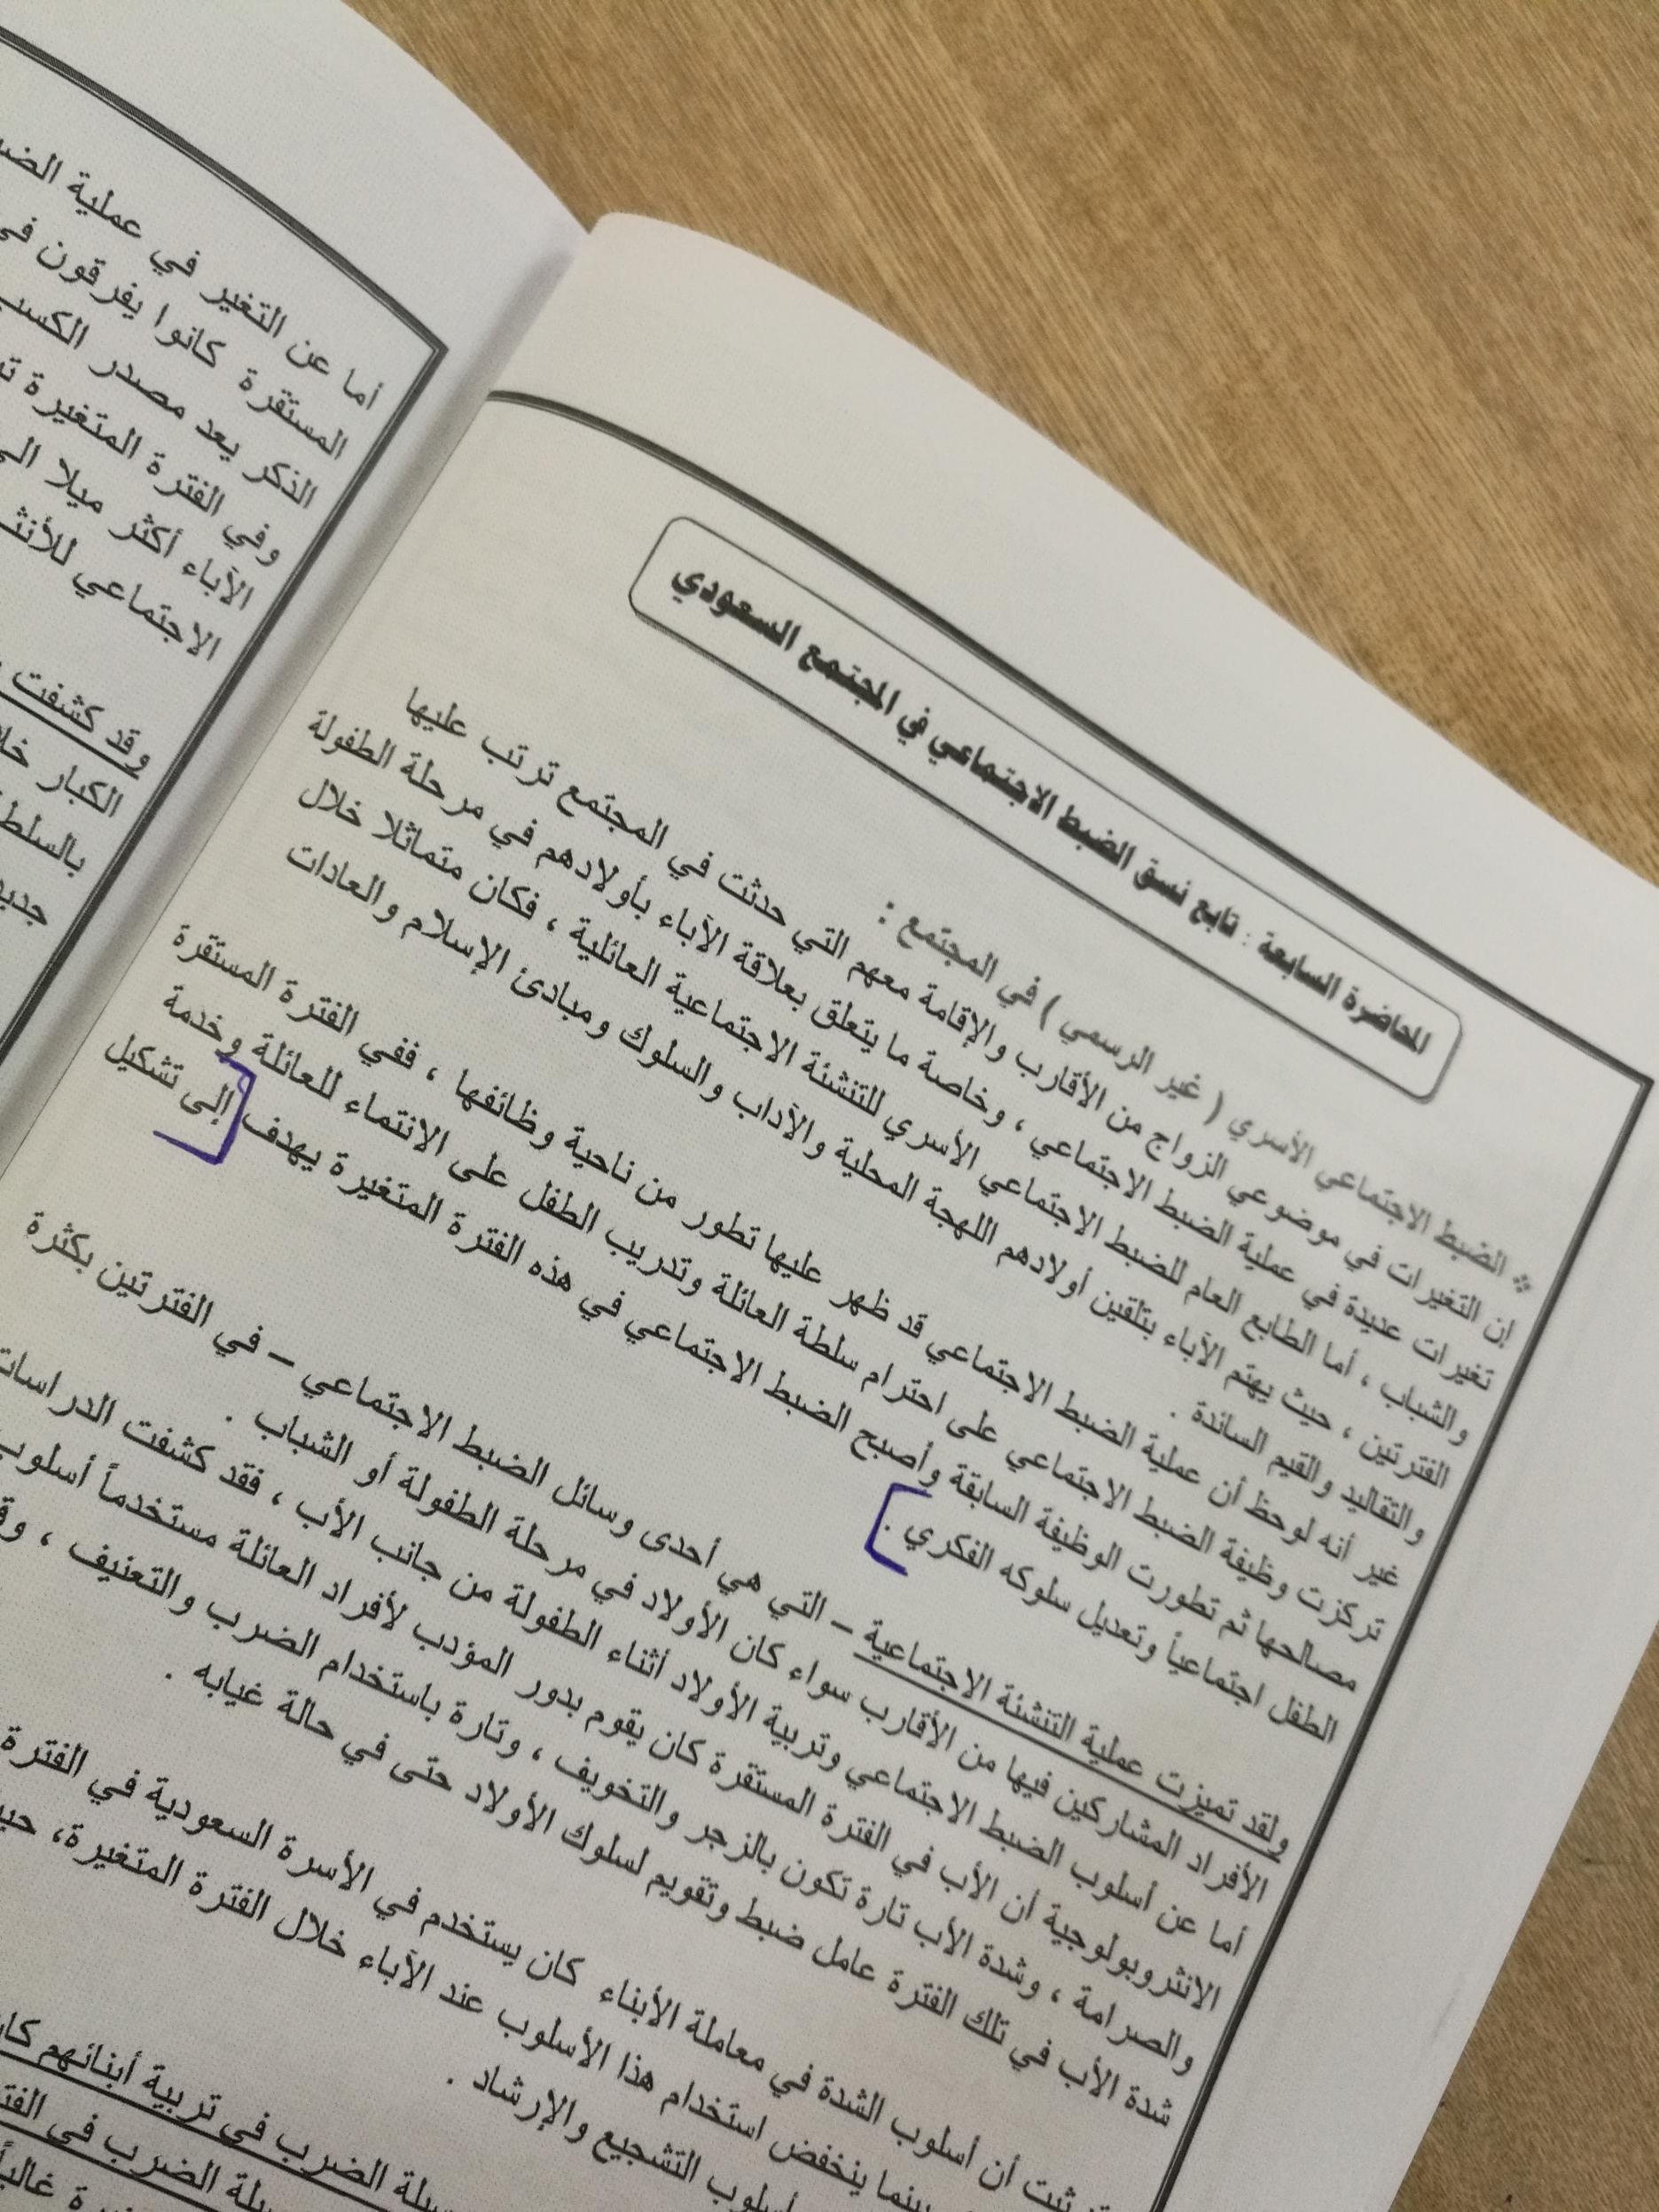 المحاضرة السابعة : تابع نسق الضبط الاجتماعي في المجتمع السعودي
❖ الضبط الاجتماعي الأسري ( غير الرسمي ) في المجتمع :
إن التغيرات في موضوعي الزواج من الأقارب والإقامة معهم التي حدثت في المجتمع ترتب عليها
تغيرات عديدة في عملية الضبط الاجتماعي ، وخاصة ما يتعلق بعلاقة الآباء بأولادهم في مرحلة الطفولة
والشباب ، أما الطابع العام للضبط الاجتماعي الأسري للتنشئة الاجتماعية العائلية ، فكان متماثلا خلال
الفترتين ، حيث يهتم الآباء بتلقين أولادهم اللهجة المحلية والآداب والسلوك ومبادئ الإسلام والعادات
والتقاليد والقيم السائدة .
غير أنه لوحظ أن عملية الضبط الاجتماعي قد ظهر عليها تطور من ناحية وظائفها ، ففي الفترة المستقرة
تركزت وظيفة الضبط الاجتماعي على احترام سلطة العائلة وتدريب الطفل على الانتماء للعائلة وخدمة
مصالحها ثم تطورت الوظيفة السابقة وأصبح الضبط الاجتماعي في هذه الفترة المتغيرة يهدف إلى تشكيل
الطفل اجتماعياً وتعديل سلوكه الفكري .
ولقد تميزت عملية التنشئة الاجتماعية – التي هي أحدى وسائل الضبط الاجتماعي – في الفترتين بكثرة
الأفراد المشاركين فيها من الأقارب سواء كان الأولاد في مرحلة الطفولة أو الشباب .
أما عن أسلوب الضبط الاجتماعي وتربية الأولاد أثناء الطفولة من جانب الأب ، فقد كشفت الدراسات
الانثروبولوجية أن الأب في الفترة المستقرة كان يقوم بدور المؤدب لأفراد العائلة مستخدماً أسلوب
والصرامة ، وشدة الأب تارة تكون بالزجر والتخويف ، وتارة باستخدام الضرب والتعنيف ،
شدة الأب في تلك الفترة عامل ضبط وتقويم لسلوك الأولاد حتى في حالة غيابه .
أن أسلوب الشدة في معاملة الأبناء كان يستخدم في الأسرة السعودية في الفترة
بينما ينخفض استخدام هذا الأسلوب عند الآباء خلال الفترة المتغيرة،
أسلوب التشجيع والإرشاد .
الضرب في تربية أبنائهم
الضرب في
غالباً
أما عن التغير في عملية
المستقرة كانوا يفرقون
الذكر يعد مصدر
وفي الفترة المتغيرة
الآباء أكثر ميلا
الاجتماعي
وقد كشفت
الكبار